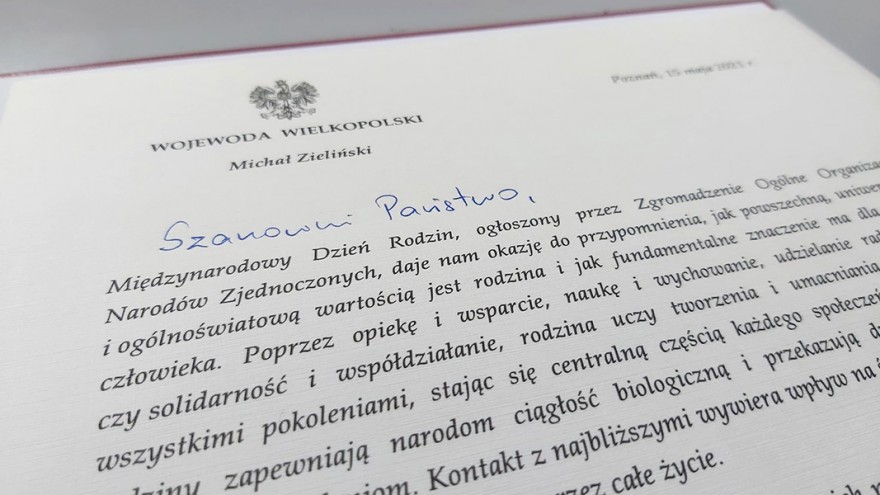 Poznań, 15 maja 2021 r.
WOJEWODA WIELKOPOLSKI
Michał Zieliński
Szanowni Państwo,
Międzynarodowy Dzień Rodzin, ogłoszony przez Zgromadzenie Ogólne
Narodów Zjednoczonych, daje nam okazję do przypomnienia, jak powszechną,
i ogólnoświatową wartością jest rodzina i jak fundamentalne znaczenie ma dla
człowieka. Poprzez opiekę i wsparcie, naukę i wychowanie, udzielanie
czy solidarność i współdziałanie, rodzina uczy tworzenia i umacniania
wszystkimi pokoleniami, stając się centralną częścią każdego
zapewniają narodom ciągłość biologiczną i przekazują
Kontakt z najbliższymi wywiera wpływ na
całe życie.